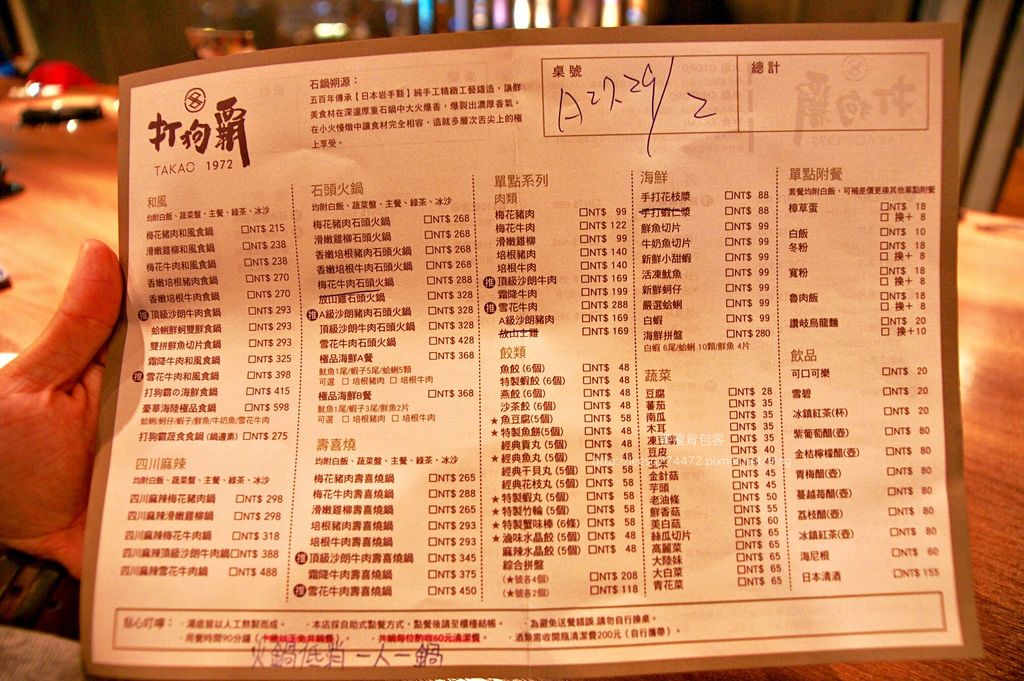 打狗霸
TAKAO 1972
石鍋朔源：
五百年傳承【日本岩手縣】純手工精緻工藝鑄造，讓鮮
美食材在深邃厚重石鍋中大火爆香，爆裂出濃厚香氣。
在小火慢燉中讓食材完全相容，造就多層次舌尖上的極
上享受。
桌號
總計
2
和風
均附白飯、蔬菜盤、主餐、綠茶、冰沙
梅花豬肉和風食鍋 □NT$ 215
滑嫩雞柳和風食鍋 □NT$ 238
梅花牛肉和風食鍋 □NT$ 238
香嫩培根豬肉食鍋 □NT$ 270
香嫩培根牛肉食鍋 □NT$ 270
推 頂級沙朗牛肉食鍋 □NT$ 293
蛤蜊鮮蚵雙鮮食鍋 □NT$ 293
雙拼鮮魚切片食鍋 □NT$ 293
霜降牛肉和風食鍋 □NT$ 325
推 雪花牛肉和風食鍋 □NT$ 398
打狗霸の海鮮食鍋 □NT$ 415
豪華海陸極品食鍋 □NT$ 598
蛤蜊/蚵仔/蝦子/鮮魚/牛奶魚/雪花牛肉
打狗霸蔬食食鍋(鍋邊素) □NT$ 275
四川麻辣
均附白飯、蔬菜盤、主餐、綠茶、冰沙
四川麻辣梅花豬肉鍋 □NT$ 298
四川麻辣滑嫩雞柳鍋 □NT$ 298
四川麻辣梅花牛肉鍋 □NT$ 318
四川麻辣頂級沙朗牛肉鍋 □NT$ 388
四川麻辣雪花牛肉鍋 □NT$ 488
石頭火鍋
均附白飯、蔬菜盤、主餐、綠茶、冰沙
梅花豬肉石頭火鍋 □NT$ 268
滑嫩雞柳石頭火鍋 □NT$ 268
香嫩培根豬肉石頭火鍋 □NT$ 268
香嫩培根牛肉石頭火鍋 □NT$ 268
梅花牛肉石頭火鍋 □NT$ 288
放山雞石頭火鍋 □NT$ 328
推 A級沙朗豬肉石頭火鍋 □NT$ 328
頂級沙朗牛肉石頭火鍋 □NT$ 328
雪花牛肉石頭火鍋 □NT$ 428
極品海鮮A餐 □NT$ 368
魷魚1尾/蝦子5尾/蛤蜊5顆
可選 □ 培根豬肉 □ 培根牛肉
極品海鮮B餐 □NT$ 368
魷魚1尾/蝦子3尾/鮮魚2片
可選 □ 培根豬肉 □ 培根牛肉
壽喜燒
均附白飯、蔬菜盤、主餐、綠茶、冰沙
梅花豬肉壽喜燒鍋 □NT$ 265
梅花牛肉壽喜燒鍋 □NT$ 288
滑嫩雞柳壽喜燒鍋 □NT$ 265
培根豬肉壽喜燒鍋 □NT$ 293
培根牛肉壽喜燒鍋 □NT$ 293
推 頂級沙朗牛肉壽喜燒鍋 □NT$ 345
霜降牛肉壽喜燒鍋 □NT$ 375
推 雪花牛肉壽喜燒鍋 □NT$ 450
單點系列
肉類
梅花豬肉 □NT$ 99
梅花牛肉 □NT$ 122
滑嫩雞柳 □NT$ 99
培根豬肉 □NT$ 140
培根牛肉 □NT$ 140
推 頂級沙朗牛肉 □NT$ 169
霜降牛肉 □NT$ 199
推 雪花牛肉 □NT$ 288
A級沙朗豬肉 □NT$ 169
放山土雞 □NT$ 169
餃類
魚餃(6個) □NT$ 48
特製蝦餃(6個) □NT$ 48
燕餃(6個) □NT$ 48
沙茶餃(6個) □NT$ 48
★魚豆腐(5個) □NT$ 58
★特製魚餅(5個) □NT$ 48
經典貢丸(5個) □NT$ 48
★經典魚丸(5個) □NT$ 58
經典干貝丸(5個) □NT$ 58
經典花枝丸(5個) □NT$ 58
★特製蝦丸(5個) □NT$ 58
★特製竹輪(5個) □NT$ 58
★特製蟹味棒(6條) □NT$ 58
★滷味水晶餃(5個) □NT$ 48
麻辣水晶餃(5個) □NT$ 48
綜合拼盤
(★號各4個) □NT$ 208
(★號各2個) □NT$ 118
海鮮
手打花枝漿 □NT$ 88
手打蝦仁漿 □NT$ 88
鮮魚切片 □NT$ 99
牛奶魚切片 □NT$ 99
新鮮小甜蝦 □NT$ 99
活凍魷魚 □NT$ 99
新鮮蚵仔 □NT$ 99
嚴選蛤蜊 □NT$ 99
白蝦 □NT$ 99
海鮮拼盤 □NT$ 280
白蝦 6尾/蛤蜊 10顆/鮮魚 4片
蔬菜
豆腐 □NT$ 28
蕃茄 □NT$ 35
南瓜 □NT$ 35
木耳 □NT$ 35
凍豆腐 □NT$ 35
豆皮 □NT$ 40
玉米 □NT$ 40
金針菇 □NT$ 45
芋頭 □NT$ 45
老油條 □NT$ 50
鮮香菇 □NT$ 55
美白菇 □NT$ 60
絲瓜切片 □NT$ 65
高麗菜 □NT$ 65
大陸妹 □NT$ 65
大白菜 □NT$ 65
青花菜 □NT$ 65
單點附餐
套餐均附白飯，可補差價更換其他單點附餐
樟草蛋 □NT$ 18
□ 換+ 8
白飯 □NT$ 10
冬粉 □NT$ 18
□ 換+ 8
寬粉 □NT$ 18
□ 換+ 8
魯肉飯 □NT$ 18
□ 換+ 8
讚岐烏龍麵 □NT$ 20
□ 換+10
飲品
可口可樂 □NT$ 20
雪碧 □NT$ 20
冰鎮紅茶(杯) □NT$ 20
紫葡萄醋(壺) □NT$ 80
金桔檸檬醋(壺) □NT$ 80
青梅醋(壺) □NT$ 80
蔓越莓醋(壺) □NT$ 80
荔枝醋(壺) □NT$ 80
冰鎮紅茶(壺) □NT$ 80
海尼根 □NT$ 60
日本清酒 □NT$ 155
點心叮嚀： ·湯底皆以人工熬製而成。 ·本店採自助式點餐方式，點餐後請至櫃檯結帳。 ·為避免送餐錯誤,請勿自行換桌。
·用餐時間90分鐘 ·共鍋每位酌收60元清潔費。 ·酒類需收開瓶清潔費200元(自行攜帶)。
火鍋低消一人一鍋